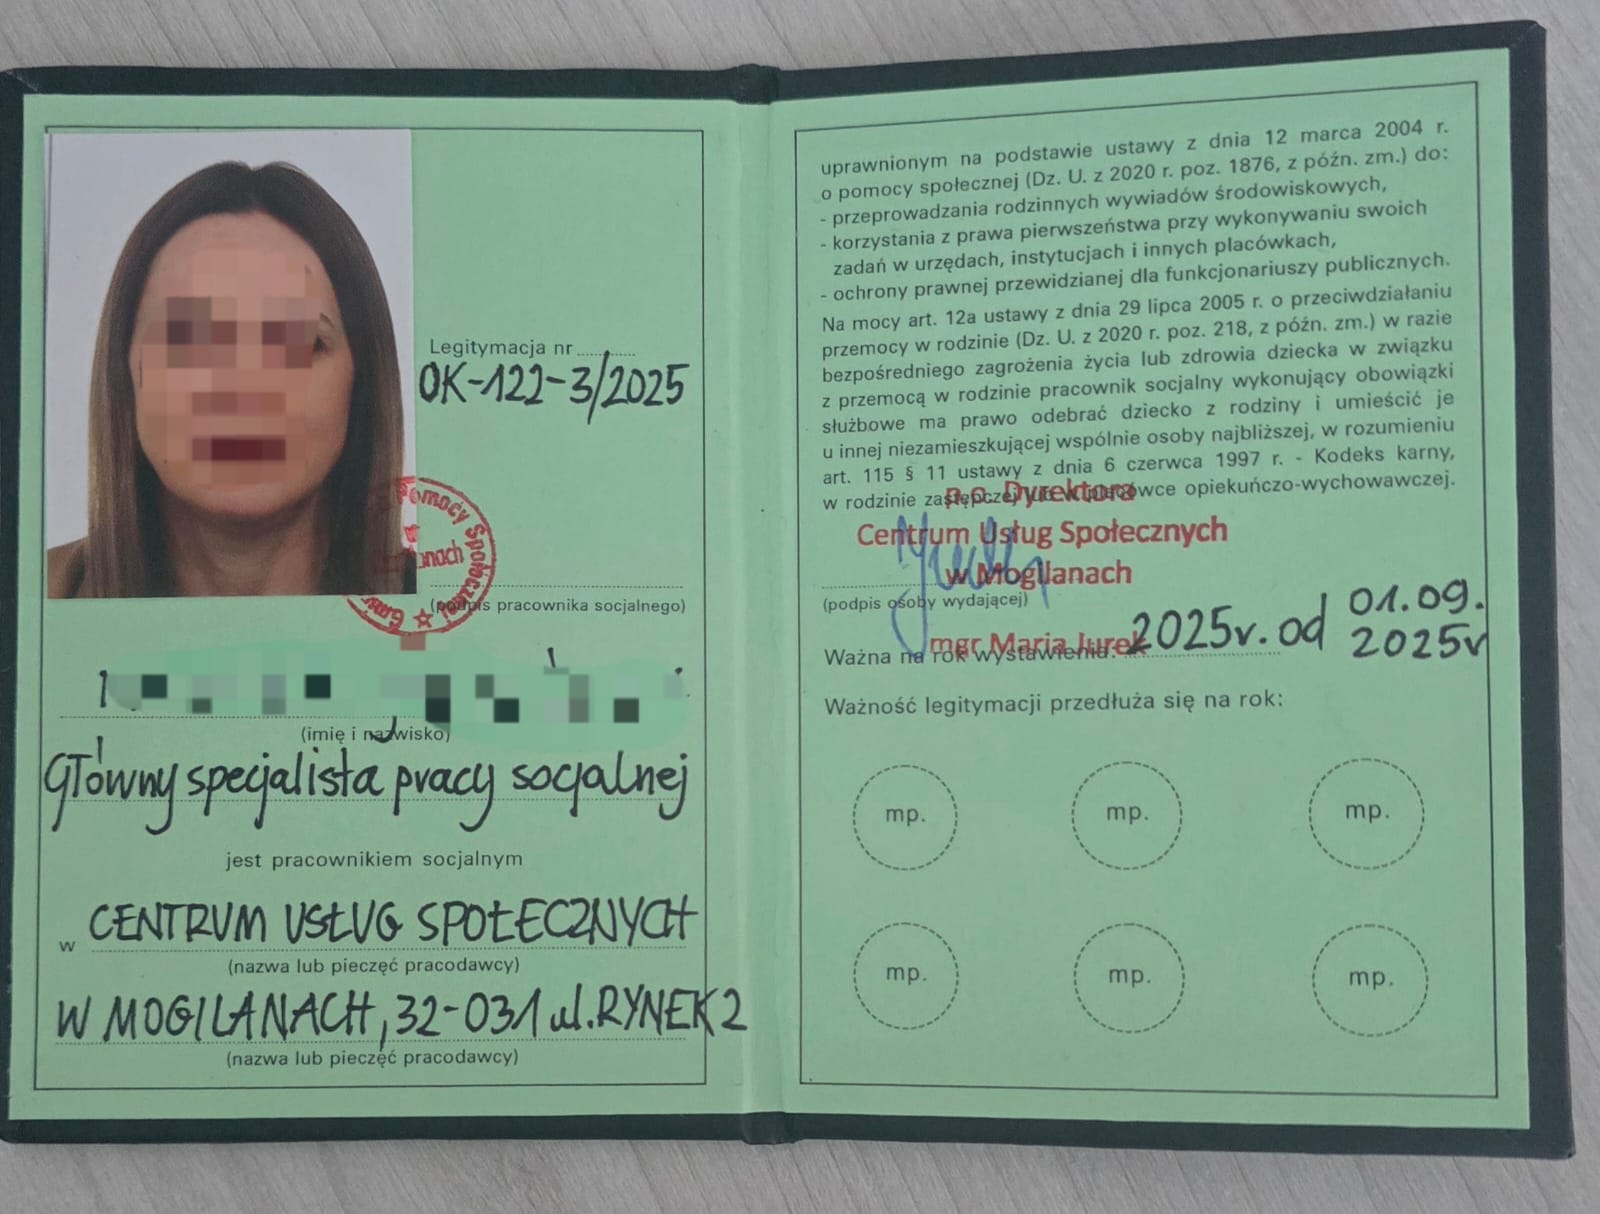 Legitymacja nr
OK-122-3/2025
Pomocy Społecznej
(podpis pracownika socjalnego)
(imię i nazwisko)
Główny specjalista pracy socjalnej
jest pracownikiem socjalnym
w CENTRUM USŁUG SPOŁECZNYCH
(nazwa lub pieczęć pracodawcy)
W MOGILANACH, 32-031 ul. RYNEK 2
(nazwa lub pieczęć pracodawcy)
uprawnionym na podstawie ustawy z dnia 12 marca 2004 r.
o pomocy społecznej (Dz. U. z 2020 r. poz. 1876, z późn. zm.) do:
- przeprowadzania rodzinnych wywiadów środowiskowych,
- korzystania z prawa pierwszeństwa przy wykonywaniu swoich
zadań w urzędach, instytucjach i innych placówkach,
- ochrony prawnej przewidzianej dla funkcjonariuszy publicznych.
Na mocy art. 12a ustawy z dnia 29 lipca 2005 r. o przeciwdziałaniu
przemocy w rodzinie (Dz. U. z 2020 r. poz. 218, z późn. zm.) w razie
bezpośredniego zagrożenia życia lub zdrowia dziecka w związku
z przemocą w rodzinie pracownik socjalny wykonujący obowiązki
służbowe ma prawo odebrać dziecko z rodziny i umieścić je
u innej niezamieszkującej wspólnie osoby najbliższej, w rozumieniu
art. 115 § 11 ustawy z dnia 6 czerwca 1997 r. - Kodeks karny,
w rodzinie zastępczej lub w placówce opiekuńczo-wychowawczej.
p.o. Dyrektora
Centrum Usług Społecznych
w Mogilanach
(podpis osoby wydającej)
mgr Maria Jurek
Ważna na rok wystawienia: 2025r. od 01.09.
2025r
Ważność legitymacji przedłuża się na rok:
mp. mp. mp.
mp. mp. mp.